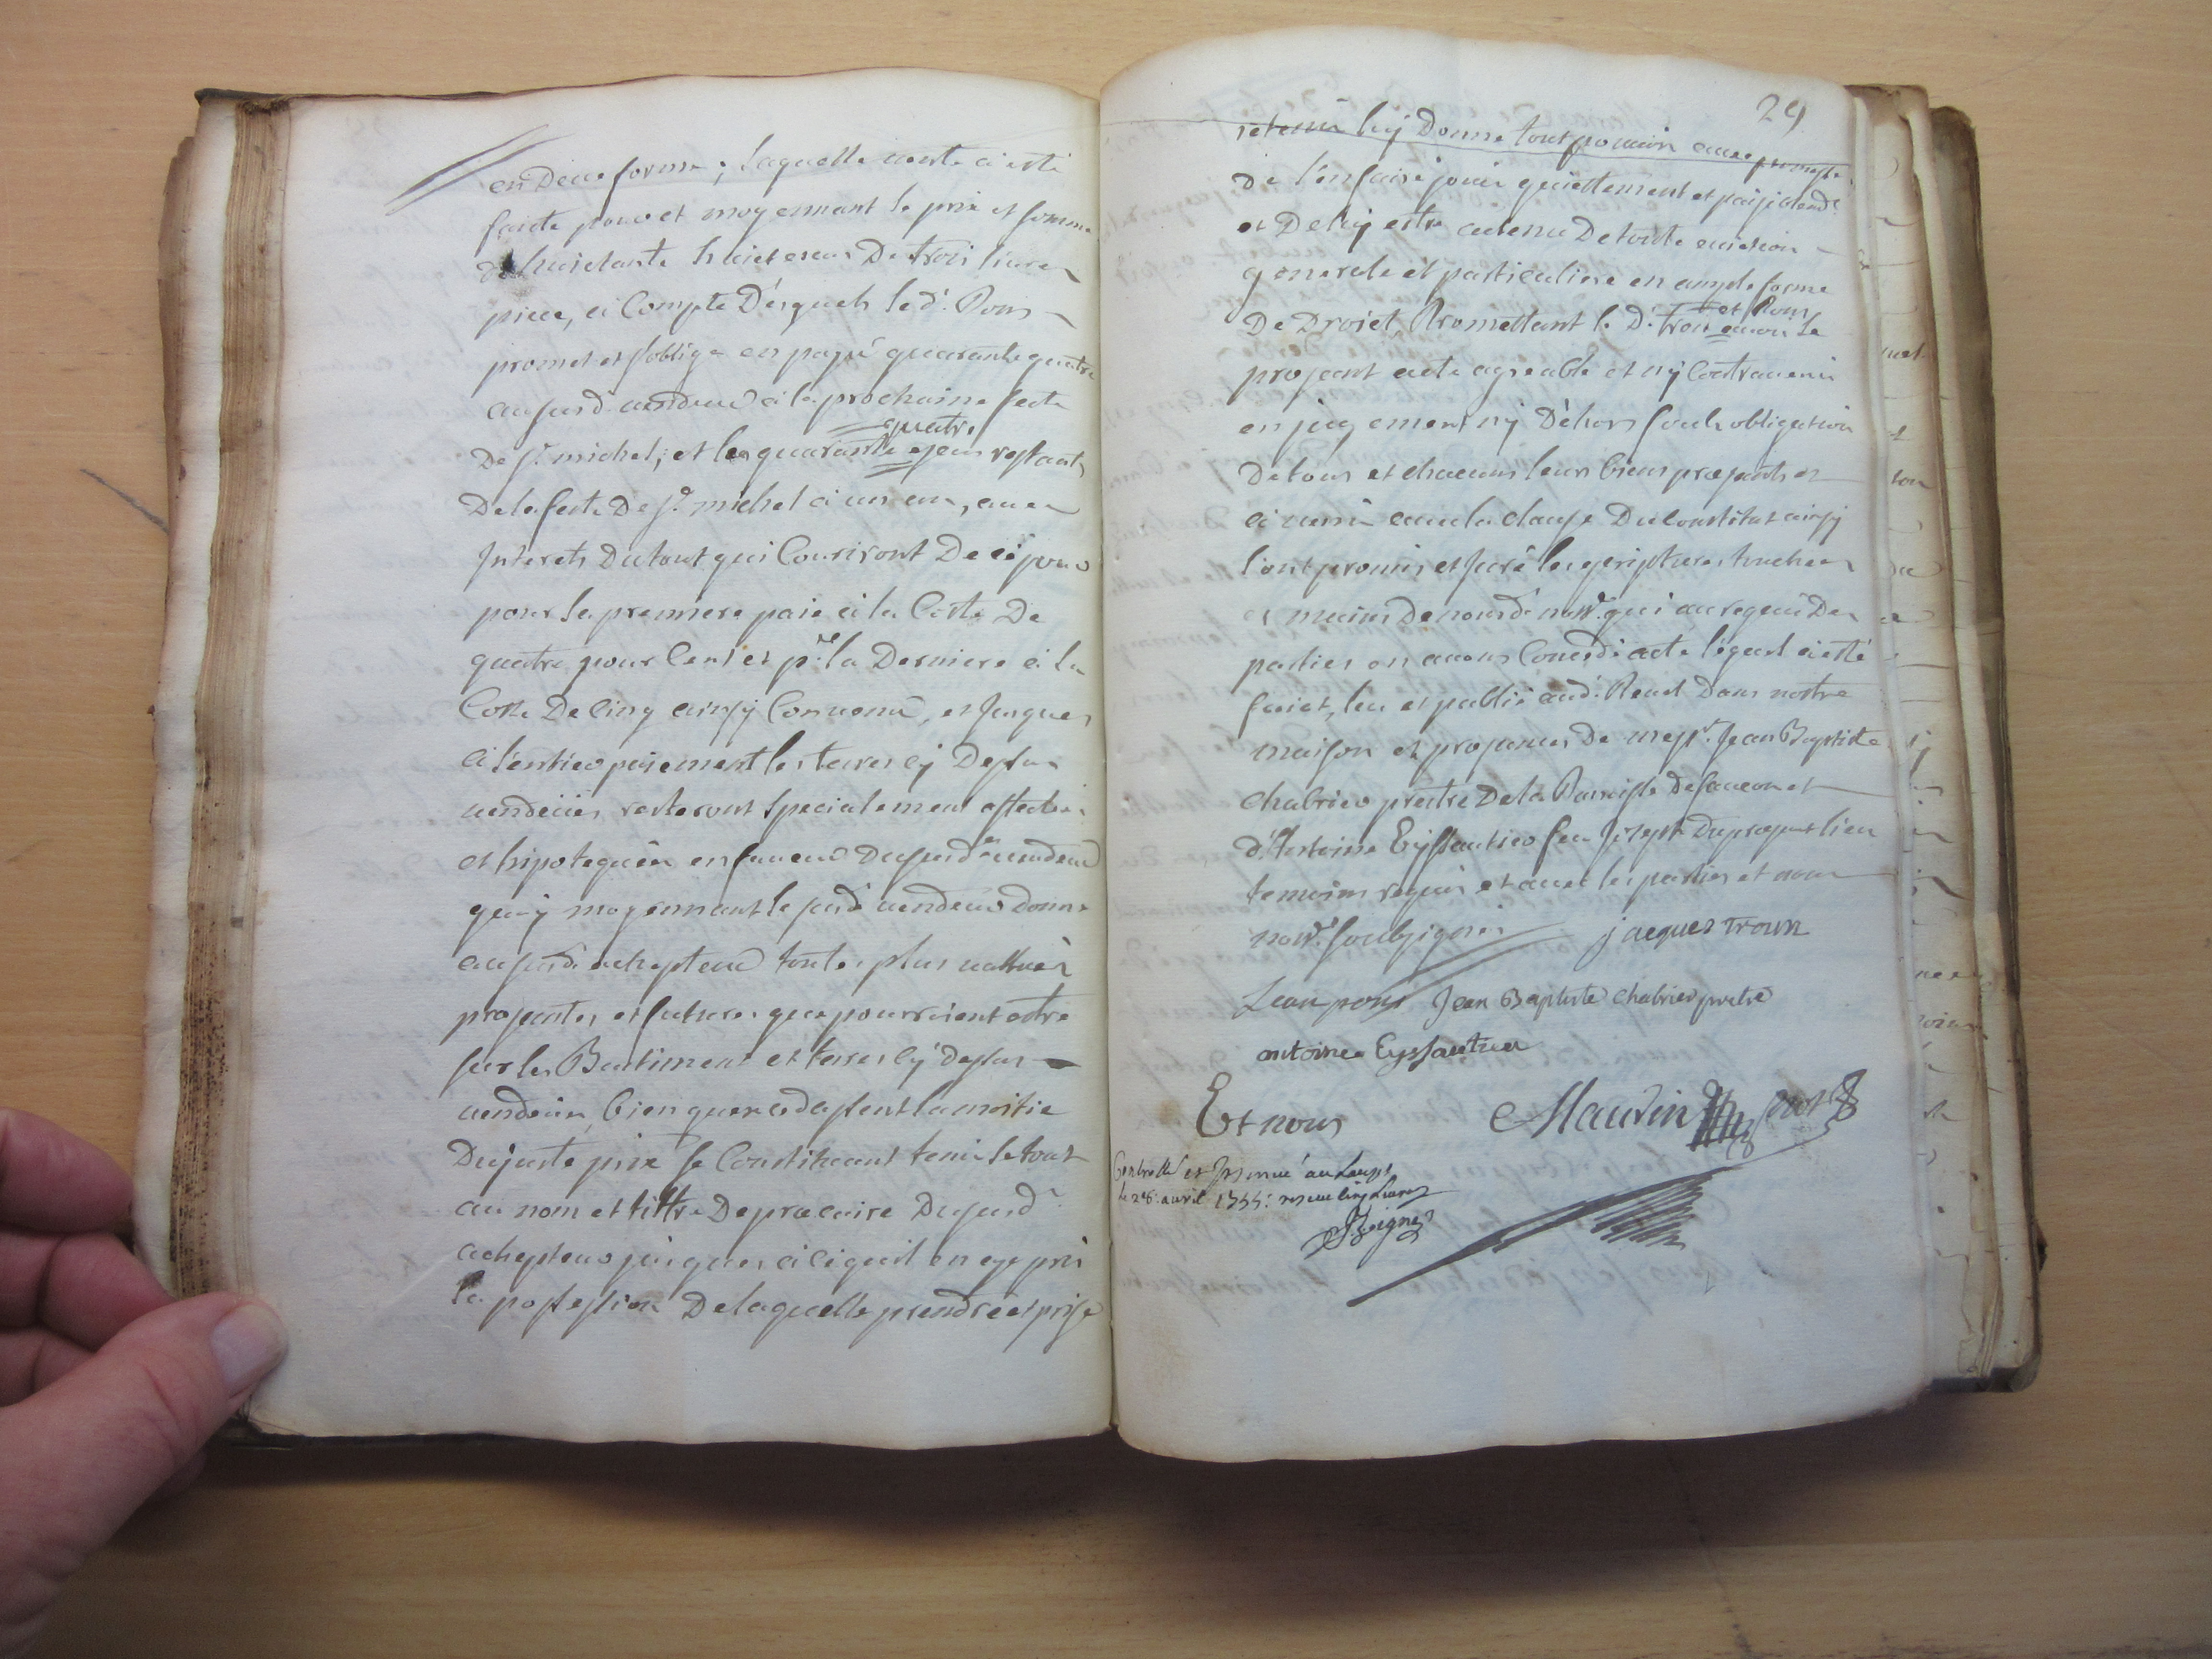 en Deue forme ; laquelle vente a esté
faicte pour et moyennant le prix et somme
de huictante huict escus De trois livres
piece, à Compte Desquels led.t Pons
promet et s'oblige en payé quarante quatre
aususd vendeur à la prochaine feste
quatre
De s.t michel ; et les quarante escus restants
De la feste De s.t michel à un an, avec
Interets Du tout qui Couriront De ce jour
pour la premiere paie à la Cotte De
quatre pour Cent et p.r la Derniere à la
Cotte De Cinq ainsy Convenu, et Jusques
à l'entier paiement les terres cy Dessus
vendeües resteront specialement affectées
et hipotequées en faveur Dususd vendeur
quy moyennant le susd vendeur donne
aususd achepteur toutes plus values
presentes et futures que pourroient estre
sur les Bastiment et terres Cy Dessus
vendeües, bien que excedassent la moitie
Dujuste prix se Constituant tenir le tout
au nom et tiltre De precaire Dususd
achepteur jusques à ce qu'il en aye pris
la possession De laquelle prendre et prise
29
retenir luy Donne tout pouvoir avec promesse
De l'en faire jouir quiettement et paisiblem.t
et De luy estre au tenu De toute eviction
generale et particuliere en ample forme
et Pons
De Droict, Promettant le D.t Tron avoir le
present acte agreable et n'y Contrevenir
en jugement ny Dehors soubs obligation
De tous et chacuns leurs biens presents et
à venir avec la clause Du Constitut ainsy
l'ont promis et juré les escriptures touchees
es mains De nousd.t not.re qui au requis Des
parties en avons Concedé acte lequel a esté
faict, leu et publié aud.t Revel Dans nostre
maison es presences De mess.re Jean Baptiste
Chabrier prestre De la Paroisse De faucon et
d'Antoine Eyssautier feu Joseph Dupresent lieu
temoins requis et avec les parties et nous
not.re soubsignés jacques Tron
Jean pons Jean Baptiste chabrier pretre
antoine Eyssautier
Et nous Maurin not
Controllé et Insinué au Lauzet
le 28: avril 1755: reçeu Cinq Livres